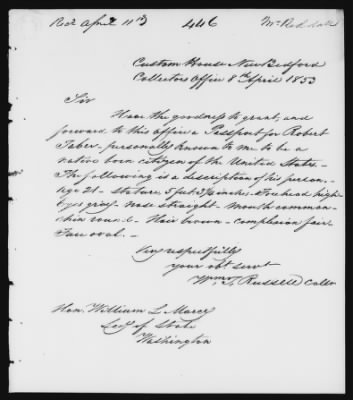 Recd April 11th 446 Mr Reddall
Custom House New Bedford
Collectors Office 8th April 1853
Sir
Have the goodness to grant, and
forward to this office a Passport for Robert
Taber - personally known to me to be a
native born citizen of the United States. -
The following is a description of his person, -
age 21 - stature, 5 feet, 7¾ inches - Forehead high -
Eyes gray - Nose straight - Mouth common -
chin round - Hair brown - complexion fair.
Face oval. -
Very respectfully
your obt servt
Wm T. Russell Collr
Hon. William L Marcy
Secy of State
Washington